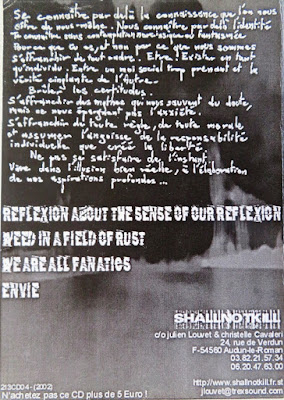 Se connaître par delà la connaissance que l'on nous
offre de nous-même. Nous connaître par delà l'identité
Te connaître sans contemplation narcissique et fantasmée
Pour ce que tu es, et non par ce que nous sommes
S'affranchir de tout cadre. Être! Exister en tant
qu'individu. Entre un moi social trop prenant et la
vérité cinglante de l'Autre.
Brûler les certitudes.
S'affranchir des mythes qui nous sauvent du doute,
mais ne nous épargnent pas l'anxiété.
S'affranchir de toute règle, de toute morale
et assumer l'angoisse de la responsabilité
individuelle que crée la liberté.
Ne pas se satisfaire de l'instant.
Vivre dans l'illusion bien réelle, à l'élaboration
de nos aspirations profondes...
REFLEXION ABOUT THE SENSE OF OUR REFLEXION
WEED IN A FIELD OF RUST
WE ARE ALL FANATICS
ENVIE
SHALLNOTKILL
c/o julien Louvet & christelle Cavaleri
24, rue de Verdun
F-54560 Audun-le-Roman
03.82.21.57.34
06.20.47.63.00
http://www.shallnotkill.fr.st
jlouvet@trexsound.com
213CD04 - (2002)
N'achetez pas ce CD plus de 5 Euro !